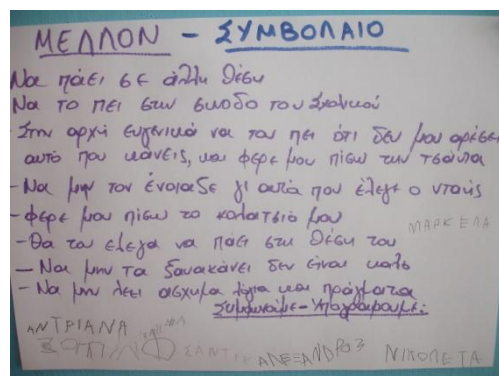 ΜΕΛΛΟΝ - ΣΥΜΒΟΛΑΙΟ
Να πάει σε άλλη θέση
Να το πει στην συνοδο του Σχολικού
-Στην αρχή ευγενικά να του πει ότι δεν μου αρέσει
αυτό που κάνεις, και φερε μου πίσω την τσάντα
-Να μην τον ένοιαζε γι αυτά που έλεγε ο νταής
-φερε μου πίσω το κολατσιο μου
ΜΑΡΚΕΛΑ
-Θα του έλεγα να πάει στη θέση του
-Να μην τα ξανακάνει δεν είναι καλό
-Να μην λεει ασχημα λόγια και πράγματα
Συμφωνούμε-Υπογράφουμε:
ΑΝΤΡΙΑΝΑ
ΑΛΕΞΑΝΔΡΟΣ ΝΙΚΟΛΕΤΑ